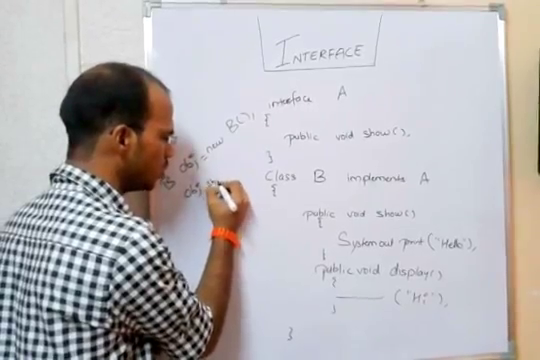 INTERFACE
interface A
{
public void show();
}
Class B implements A
{
public void show()
{
System out print ("Hello");
}
public void display()
{
("Hi");
}
}
B obj = new B();
obj. sh